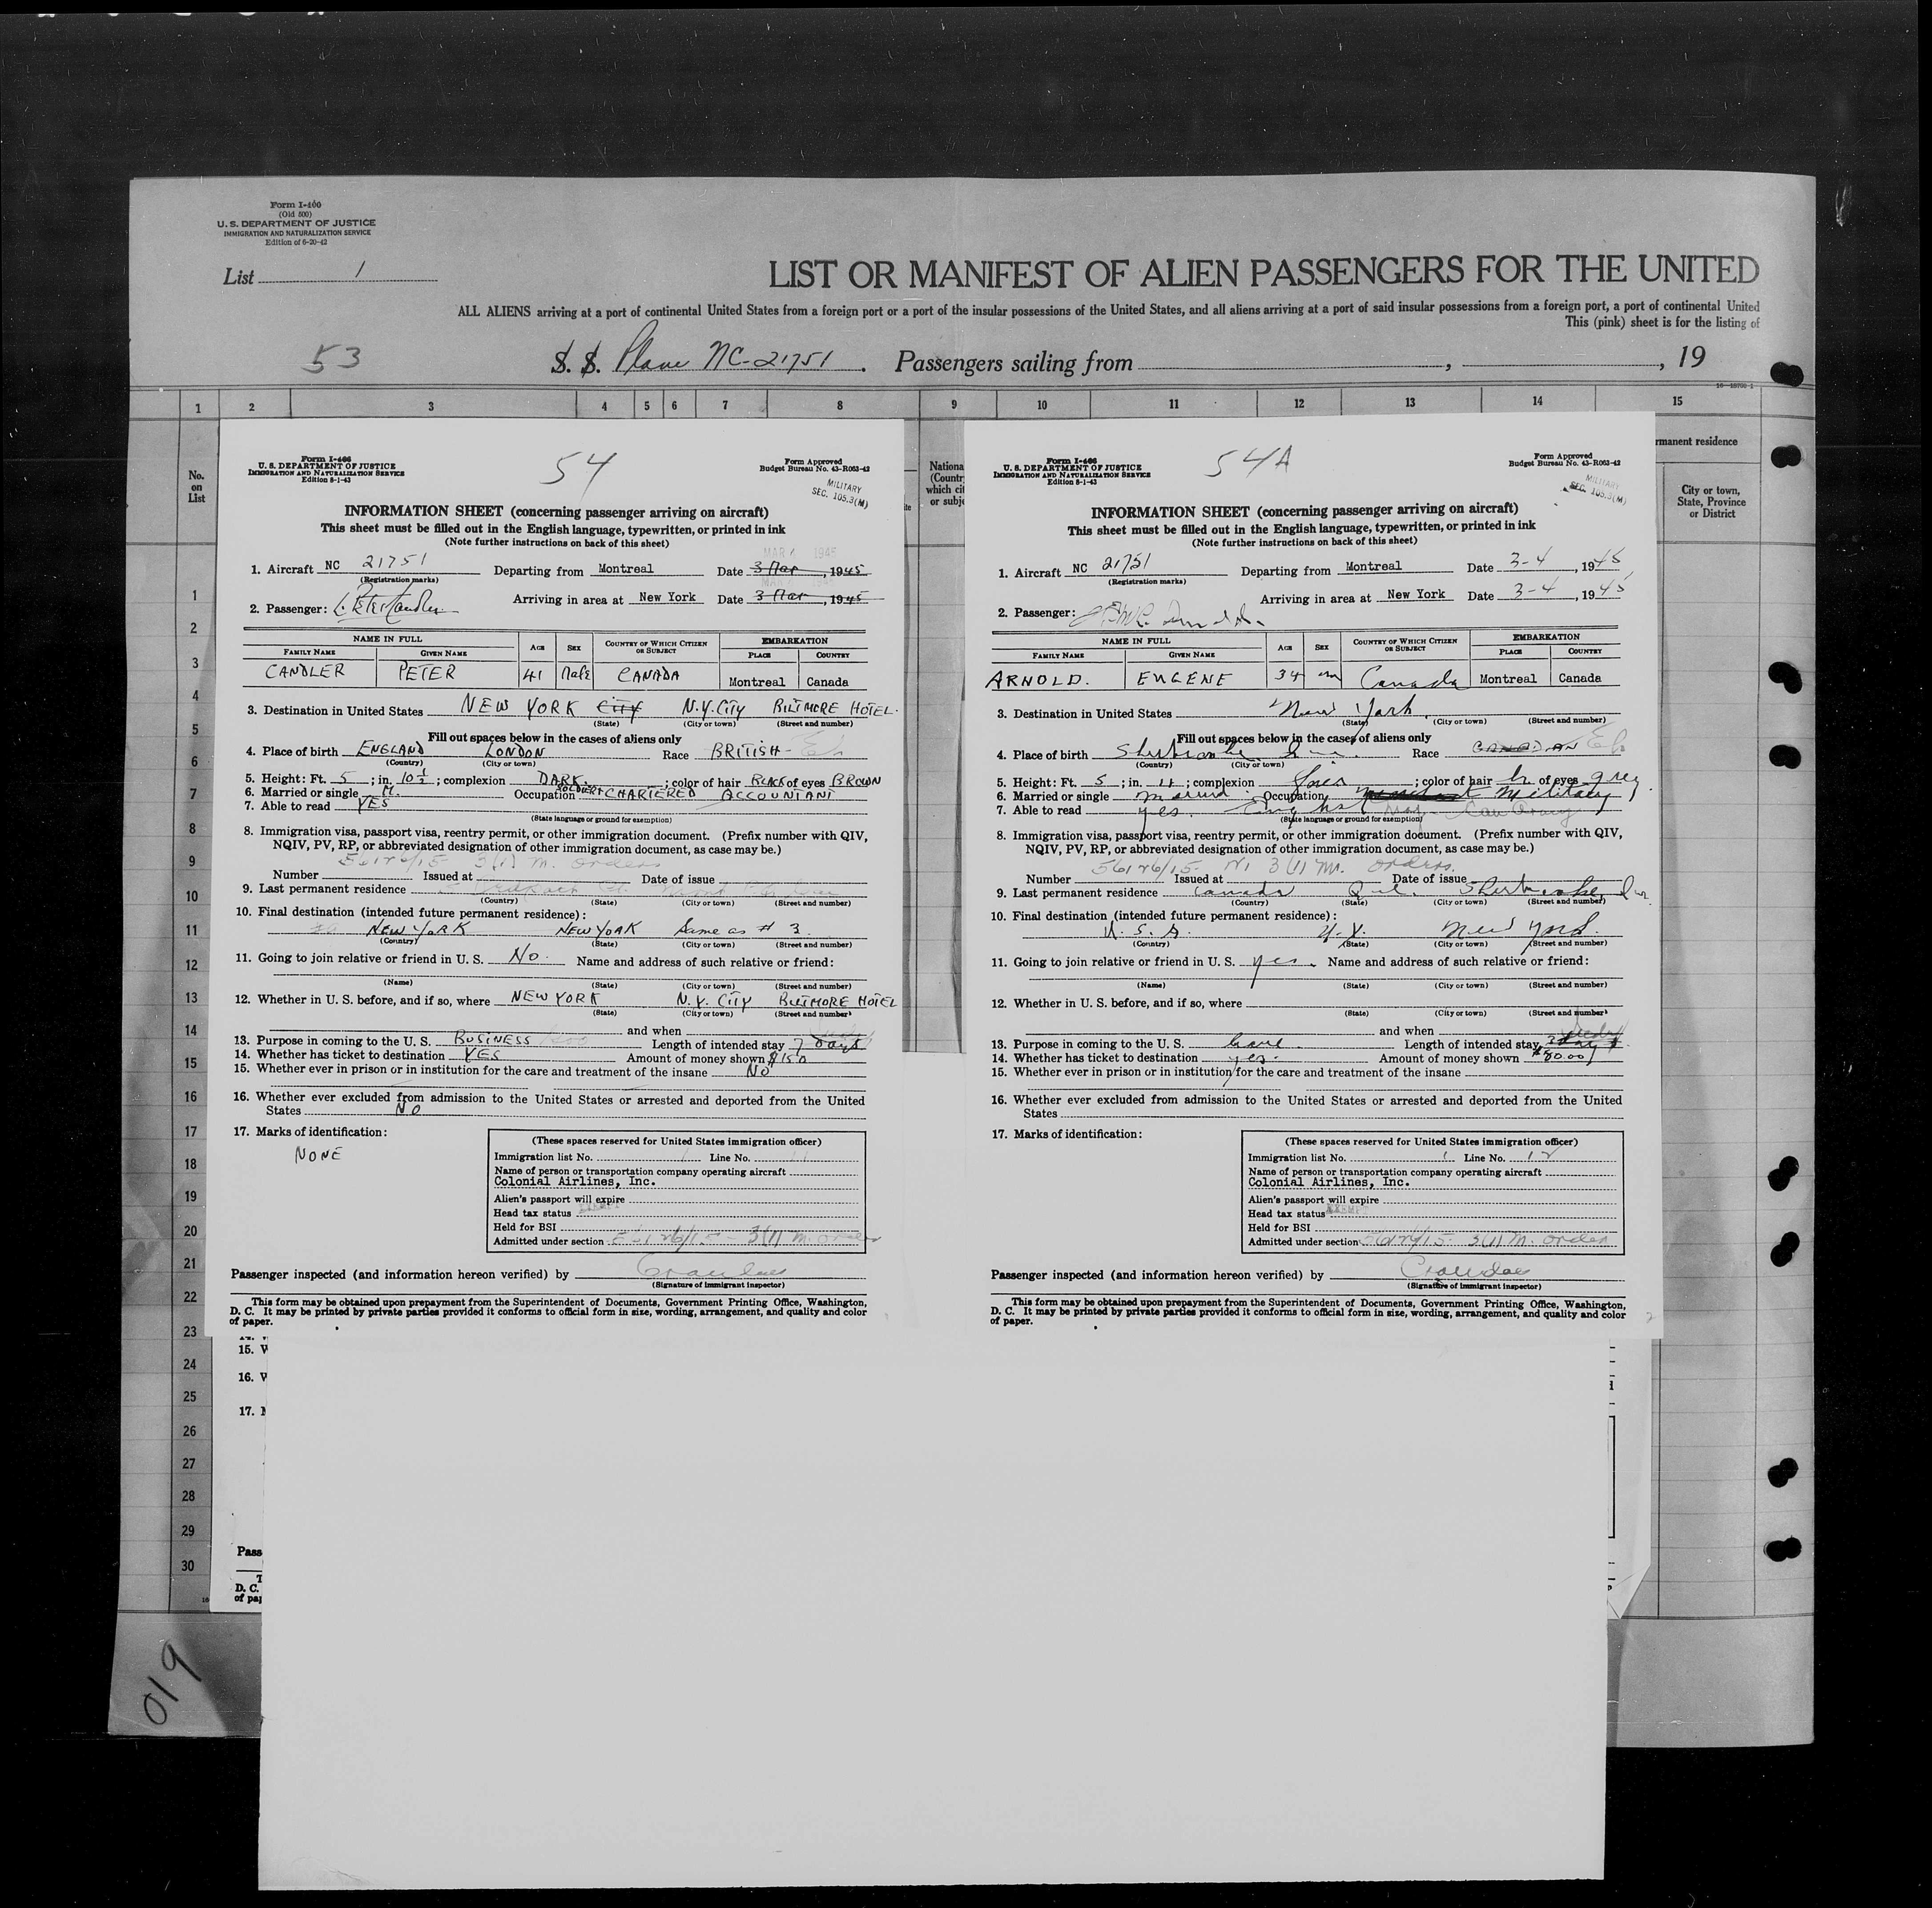 Form I-400
(Old 500)
U. S. DEPARTMENT OF JUSTICE
IMMIGRATION AND NATURALIZATION SERVICE
Edition of 6-20-42
List 1
LIST OR MANIFEST OF ALIEN PASSENGERS FOR THE UNITED
ALL ALIENS arriving at a port of continental United States from a foreign port or a port of the insular possessions of the United States, and all aliens arriving at a port of said insular possessions from a foreign port, a port of continental United
This (pink) sheet is for the listing of
53 S. S. Plane NC-21751. Passengers sailing from , , 19
1 2 3 4 5 6 7 8 9 10 11 12 13 14 15
No.
on
List
Nationa
(Countr
which cit
or subje
rmanent residence
City or town,
State, Province
or District
1
2
3
4
5
6
7
8
9
10
11
12
13
14
15
16
17
18
19
20
21
22
23
24
25
26
27
28
29
30
Form I-466
U. S. DEPARTMENT OF JUSTICE
IMMIGRATION AND NATURALIZATION SERVICE
Edition 8-1-43
54
Form Approved
Budget Bureau No. 43-R063-42
MILITARY
SEC. 105.3(M)
INFORMATION SHEET (concerning passenger arriving on aircraft)
This sheet must be filled out in the English language, typewritten, or printed in ink
(Note further instructions on back of this sheet)
MAR 4 1945
1. Aircraft NC 21751 Departing from Montreal Date 3 Mar, 1945
(Registration marks)
Arriving in area at New York Date 3 Mar, 1945
2. Passenger: Peter Candler
NAME IN FULL AGE SEX COUNTRY OF WHICH CITIZEN OR SUBJECT EMBARKATION
FAMILY NAME GIVEN NAME PLACE COUNTRY
CANDLER PETER 41 Male CANADA Montreal Canada
3. Destination in United States NEW YORK City N.Y. CITY BILTMORE HOTEL.
(State) (City or town) (Street and number)
Fill out spaces below in the cases of aliens only
4. Place of birth ENGLAND LONDON Race BRITISH-
(Country) (City or town)
5. Height: Ft. 5; in. 10½; complexion DARK; color of hair BLACK of eyes BROWN
6. Married or single M. Occupation SOLDIER + CHARTERED ACCOUNTANT
7. Able to read YES
(State language or ground for exemption)
8. Immigration visa, passport visa, reentry permit, or other immigration document. (Prefix number with QIV,
NQIV, PV, RP, or abbreviated designation of other immigration document, as case may be.)
3(1) m. orders
Number Issued at Date of issue
9. Last permanent residence
(Country) (State) (City or town) (Street and number)
10. Final destination (intended future permanent residence):
NEW YORK NEW YORK Same as # 3.
(Country) (State) (City or town) (Street and number)
11. Going to join relative or friend in U. S. No. Name and address of such relative or friend:
(Name) (State) (City or town) (Street and number)
12. Whether in U. S. before, and if so, where NEW YORK N.Y. CITY BILTMORE HOTEL
(State) (City or town) (Street and number)
and when
13. Purpose in coming to the U. S. BUSINESS Length of intended stay 7 days
14. Whether has ticket to destination YES Amount of money shown $150
15. Whether ever in prison or in institution for the care and treatment of the insane NO
16. Whether ever excluded from admission to the United States or arrested and deported from the United
States NO
17. Marks of identification:
NONE
(These spaces reserved for United States immigration officer)
Immigration list No. 1 Line No. 11
Name of person or transportation company operating aircraft
Colonial Airlines, Inc.
Alien's passport will expire
Head tax status EXEMPT
Held for BSI
Admitted under section 3(1) m. orders
Passenger inspected (and information hereon verified) by
(Signature of immigrant inspector)
This form may be obtained upon prepayment from the Superintendent of Documents, Government Printing Office, Washington,
D. C. It may be printed by private parties provided it conforms to official form in size, wording, arrangement, and quality and color
of paper.
Form I-466
U. S. DEPARTMENT OF JUSTICE
IMMIGRATION AND NATURALIZATION SERVICE
Edition 8-1-43
54A
Form Approved
Budget Bureau No. 43-R063-42
MILITARY
SEC. 105.3(M)
INFORMATION SHEET (concerning passenger arriving on aircraft)
This sheet must be filled out in the English language, typewritten, or printed in ink
(Note further instructions on back of this sheet)
1. Aircraft NC 21751 Departing from Montreal Date 3-4, 1945
(Registration marks)
Arriving in area at New York Date 3-4, 1945
2. Passenger:
NAME IN FULL AGE SEX COUNTRY OF WHICH CITIZEN OR SUBJECT EMBARKATION
FAMILY NAME GIVEN NAME PLACE COUNTRY
ARNOLD. EUGENE 34 m Canada Montreal Canada
3. Destination in United States New York.
(State) (City or town) (Street and number)
Fill out spaces below in the cases of aliens only
4. Place of birth Sherbrooke Que. Race CANADIAN
(Country) (City or town)
5. Height: Ft. 5; in. 11; complexion fair; color of hair br. of eyes grey
6. Married or single married Occupation Military
7. Able to read yes. English
(State language or ground for exemption)
8. Immigration visa, passport visa, reentry permit, or other immigration document. (Prefix number with QIV,
NQIV, PV, RP, or abbreviated designation of other immigration document, as case may be.)
56126/15 3(1) m. orders.
Number Issued at Date of issue
9. Last permanent residence Canada Que. Sherbrooke, Que.
(Country) (State) (City or town) (Street and number)
10. Final destination (intended future permanent residence):
U. S. A. N. Y. New York.
(Country) (State) (City or town) (Street and number)
11. Going to join relative or friend in U. S. yes. Name and address of such relative or friend:
(Name) (State) (City or town) (Street and number)
12. Whether in U. S. before, and if so, where
(State) (City or town) (Street and number)
and when
13. Purpose in coming to the U. S. leave. Length of intended stay
14. Whether has ticket to destination yes. Amount of money shown $80.00
15. Whether ever in prison or in institution for the care and treatment of the insane
16. Whether ever excluded from admission to the United States or arrested and deported from the United
States
17. Marks of identification:
(These spaces reserved for United States immigration officer)
Immigration list No. 1 Line No. 12
Name of person or transportation company operating aircraft
Colonial Airlines, Inc.
Alien's passport will expire
Head tax status EXEMPT
Held for BSI
Admitted under section 56126/15 3(1) m. orders
Passenger inspected (and information hereon verified) by
(Signature of immigrant inspector)
This form may be obtained upon prepayment from the Superintendent of Documents, Government Printing Office, Washington,
D. C. It may be printed by private parties provided it conforms to official form in size, wording, arrangement, and quality and color
of paper.
15. W
16. W
17. M
Pass
T
D. C.
of pap
019